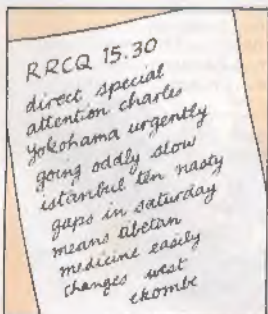 RRCQ 15.30
direct special
attention charles
yokohama urgently
going oddly slow
istanbul ten nasty
gaps in saturday
means tibetan
medicine easily
changes west
ekombe